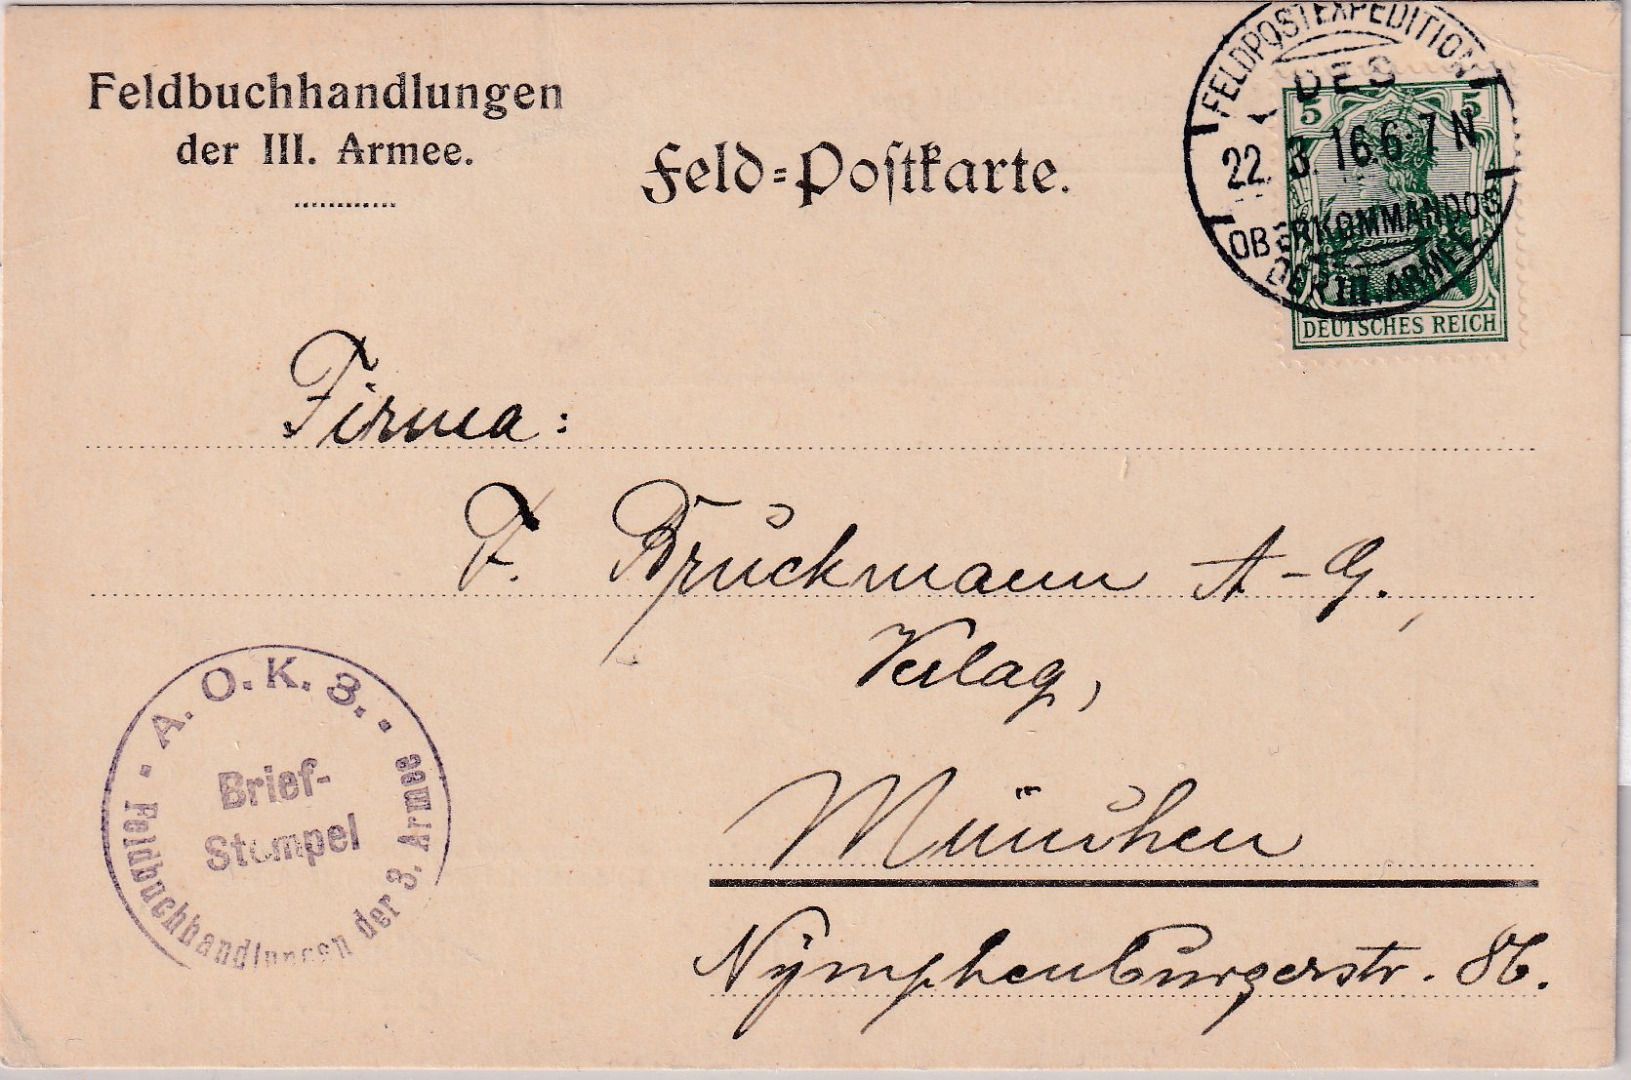 Feldbuchhandlungen
der III. Armee.
Feld=Postkarte.
FELDPOSTEXPEDITION
DES
22. 3. 16 6-7 N
OBERKOMMANDOS
DER III. ARMEE
5 5
DEUTSCHES REICH
Firma:
F. Bruckmann A-G.,
Verlag,
München
Nymphenburgerstr. 86.
A. O. K. 3.
Brief-
Stempel
Feldbuchhandlungen der 3. Armee